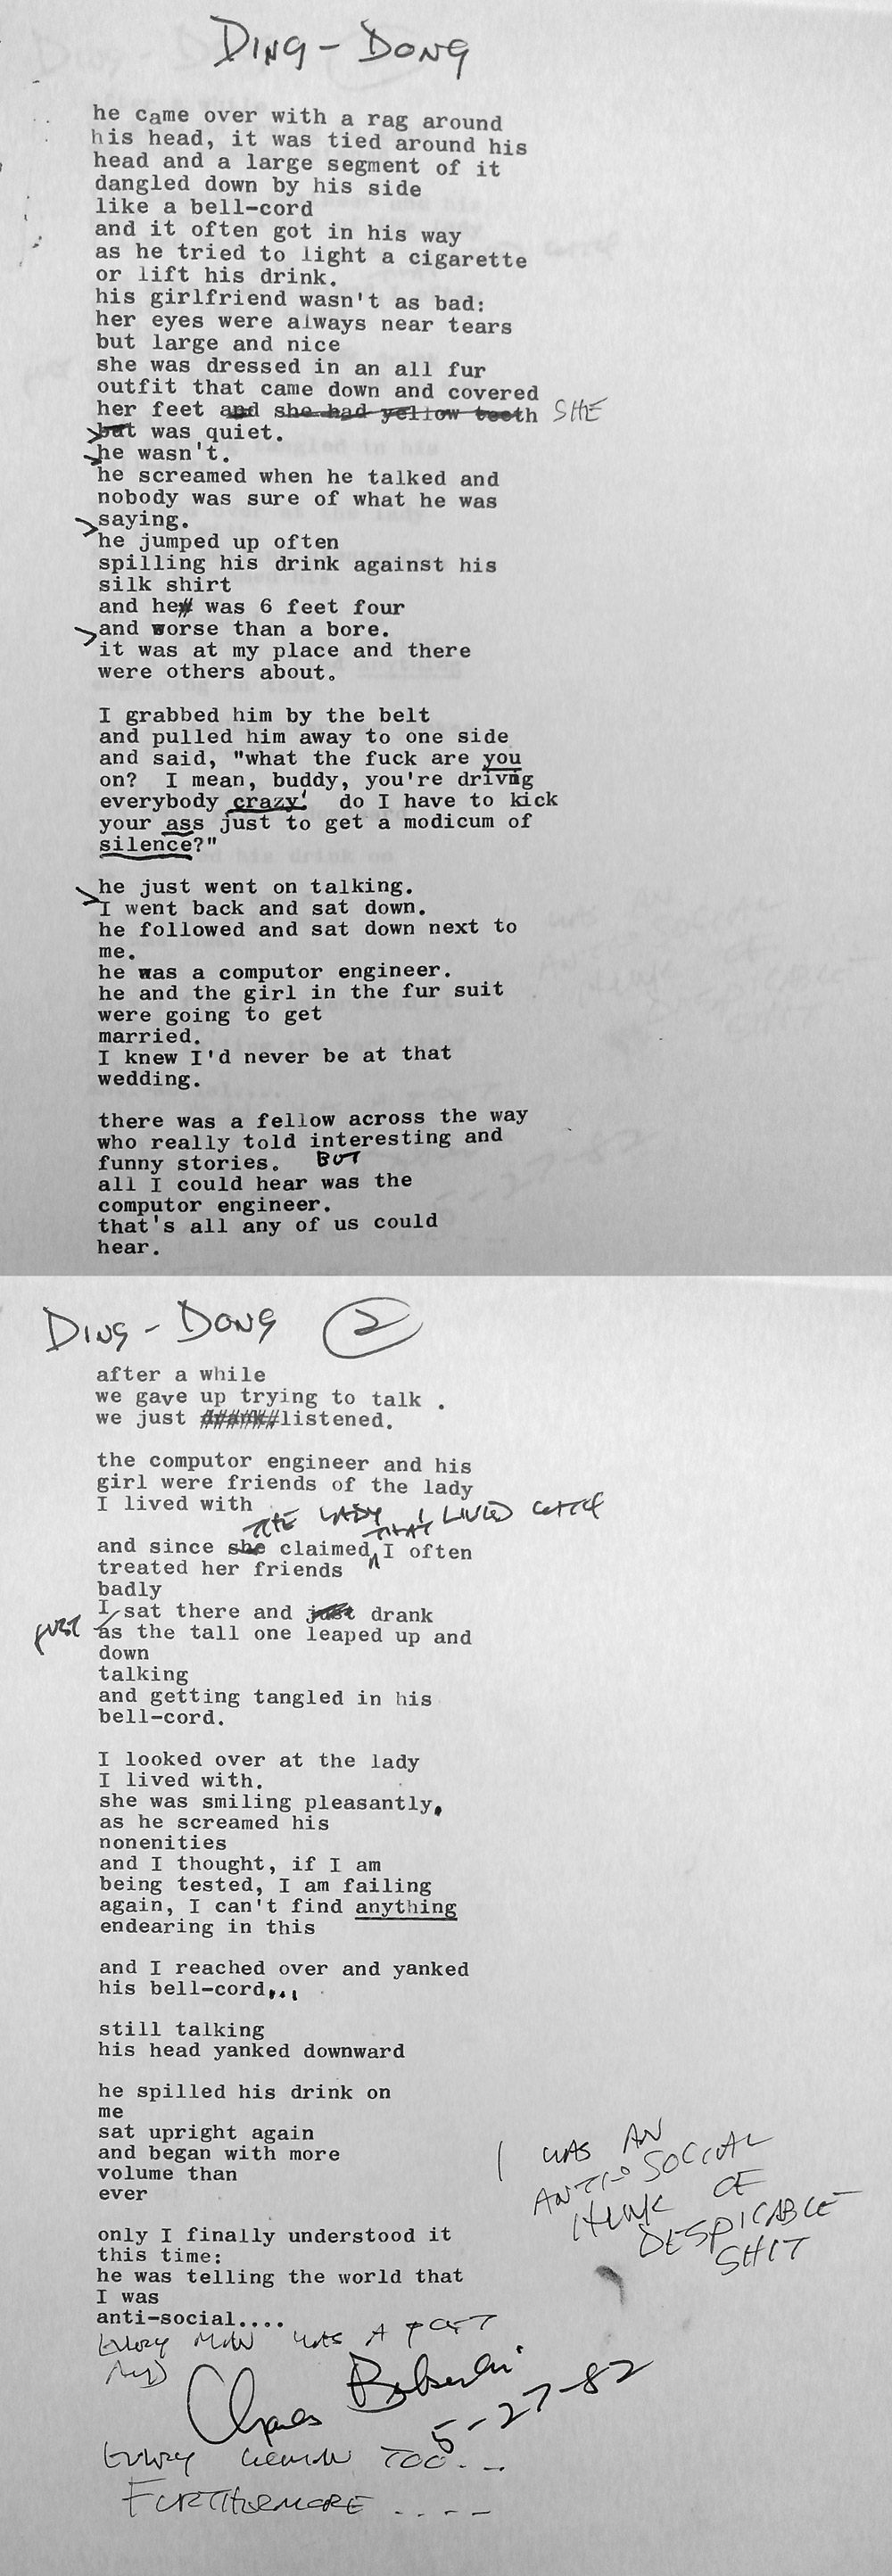 DING - DONG
he came over with a rag around
his head, it was tied around his
head and a large segment of it
dangled down by his side
like a bell-cord
and it often got in his way
as he tried to light a cigarette
or lift his drink.
his girlfriend wasn't as bad:
her eyes were always near tears
but large and nice
she was dressed in an all fur
outfit that came down and covered
her feet and she had yellow teeth SHE
but was quiet.
he wasn't.
he screamed when he talked and
nobody was sure of what he was
saying.
he jumped up often
spilling his drink against his
silk shirt
and he# was 6 feet four
and worse than a bore.
it was at my place and there
were others about.
I grabbed him by the belt
and pulled him away to one side
and said, "what the fuck are you
on?  I mean, buddy, you're drivng
everybody crazy!  do I have to kick
your ass just to get a modicum of
silence?"
he just went on talking.
I went back and sat down.
he followed and sat down next to
me.
he was a computor engineer.
he and the girl in the fur suit
were going to get
married.
I knew I'd never be at that
wedding.
there was a fellow across the way
who really told interesting and
funny stories. BUT
all I could hear was the
computor engineer.
that's all any of us could
hear.
DING - DONG 2
after a while
we gave up trying to talk .
we just listened.
the computor engineer and his
girl were friends of the lady
I lived with
THE LADY I LIVED WITH
THAT
and since she claimed I often
treated her friends
badly
I sat there and just drank
just as the tall one leaped up and
down
talking
and getting tangled in his
bell-cord.
I looked over at the lady
I lived with.
she was smiling pleasantly,
as he screamed his
nonenities
and I thought, if I am
being tested, I am failing
again, I can't find anything
endearing in this
and I reached over and yanked
his bell-cord...
still talking
his head yanked downward
he spilled his drink on
me
sat upright again
and began with more
volume than
ever
I WAS AN
ANTI-SOCIAL
HUNK OF
DESPICABLE
SHIT
only I finally understood it
this time:
he was telling the world that
I was
anti-social....
EVERY MAN WAS A POET
AND
Charles Bukowski
5-27-82
EVERY WOMAN TOO...
FURTHERMORE ....